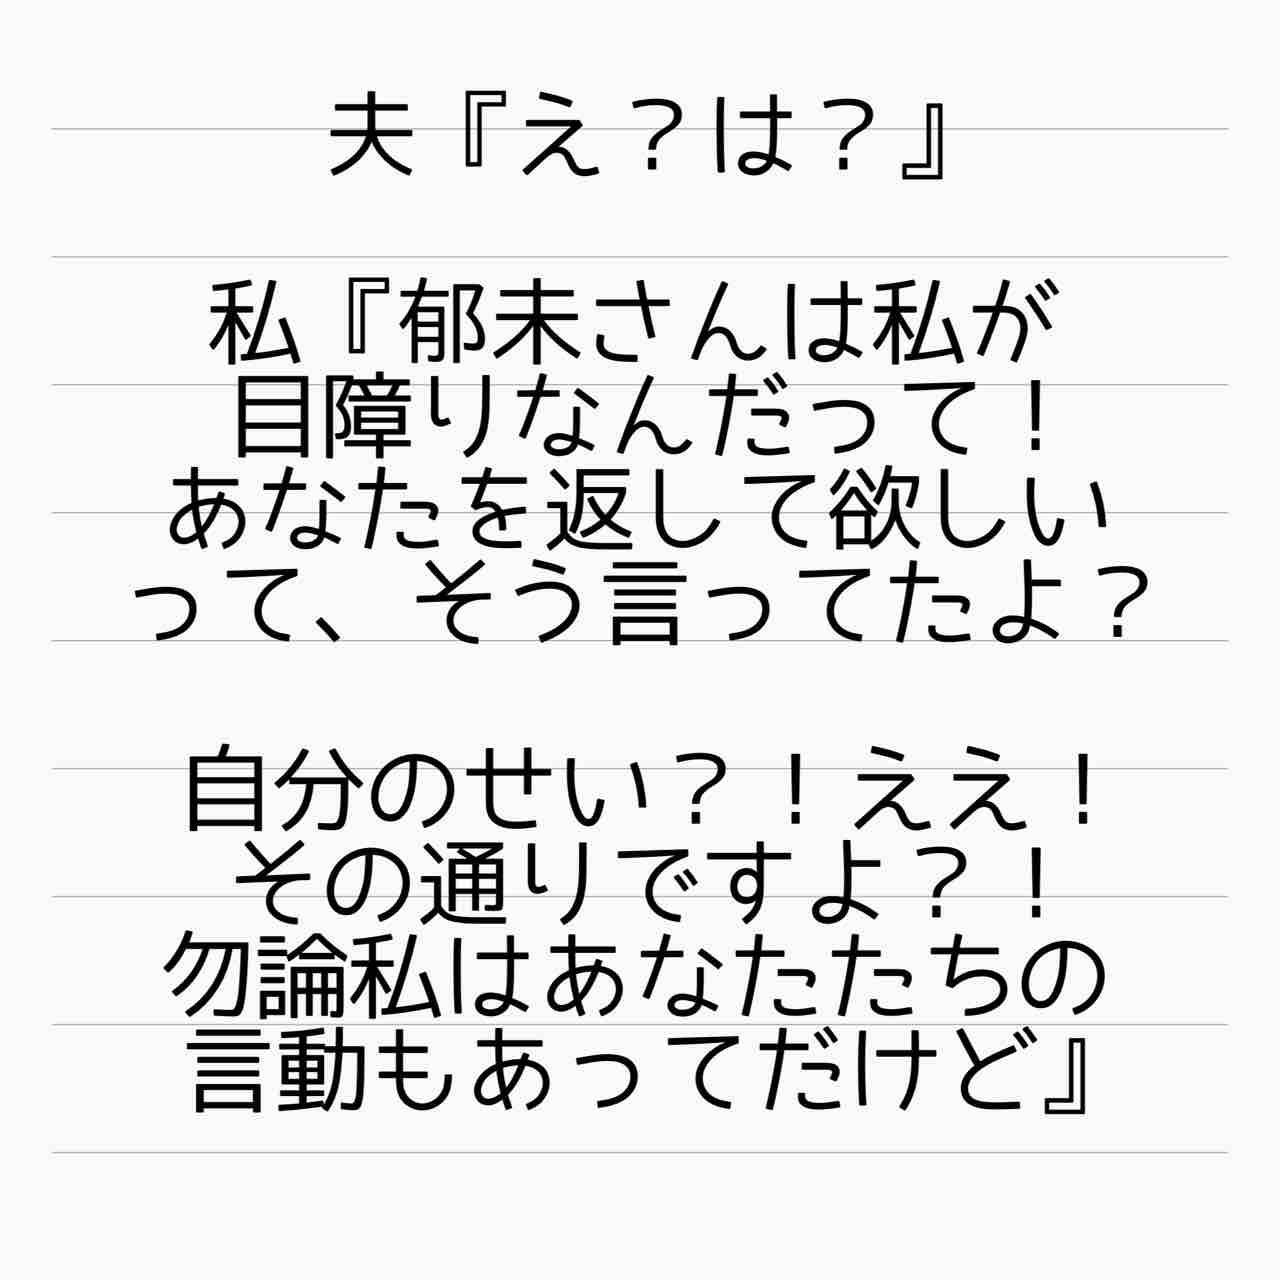 夫『え？は？』
私『郁未さんは私が
目障りなんだって！
あなたを返して欲しい
って、そう言ってたよ？
自分のせい？！ええ！
その通りですよ？！
勿論私はあなたたちの
言動もあってだけど』